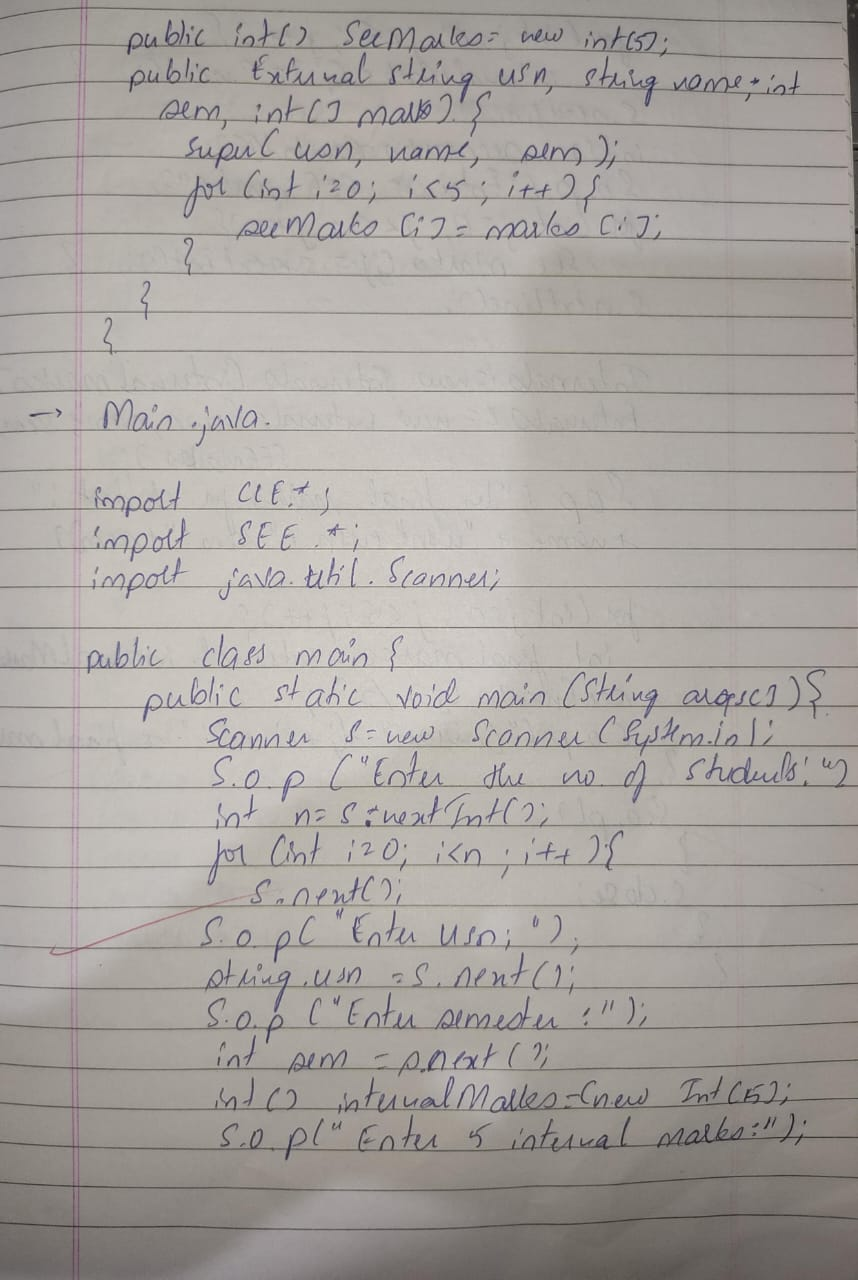 public int[] SeeMarks= new int[5];
public External string usn, string name, int
sem, int[] marks) {
super( usn, name, sem);
for (int i=0; i<5; i++){
seeMarks [i] = marks [i];
}
}
}
→ Main.java.
import CIE.*;
import SEE.*;
import java.util.Scanner;
public class main {
public static void main (String args[]){
Scanner S=new Scanner (System.in);
S.o.p ("Enter the no. of students:")
int n= S.nextInt();
for (int i=0; i<n; i++){
S.next();
S.o.p( "Enter usn; ");
string usn =S.next();
S.o.p ("Enter semester :");
int sem = s.next();
int[] internalMarks=(new Int[5];
S.o.p(" Enter 5 internal marks:");